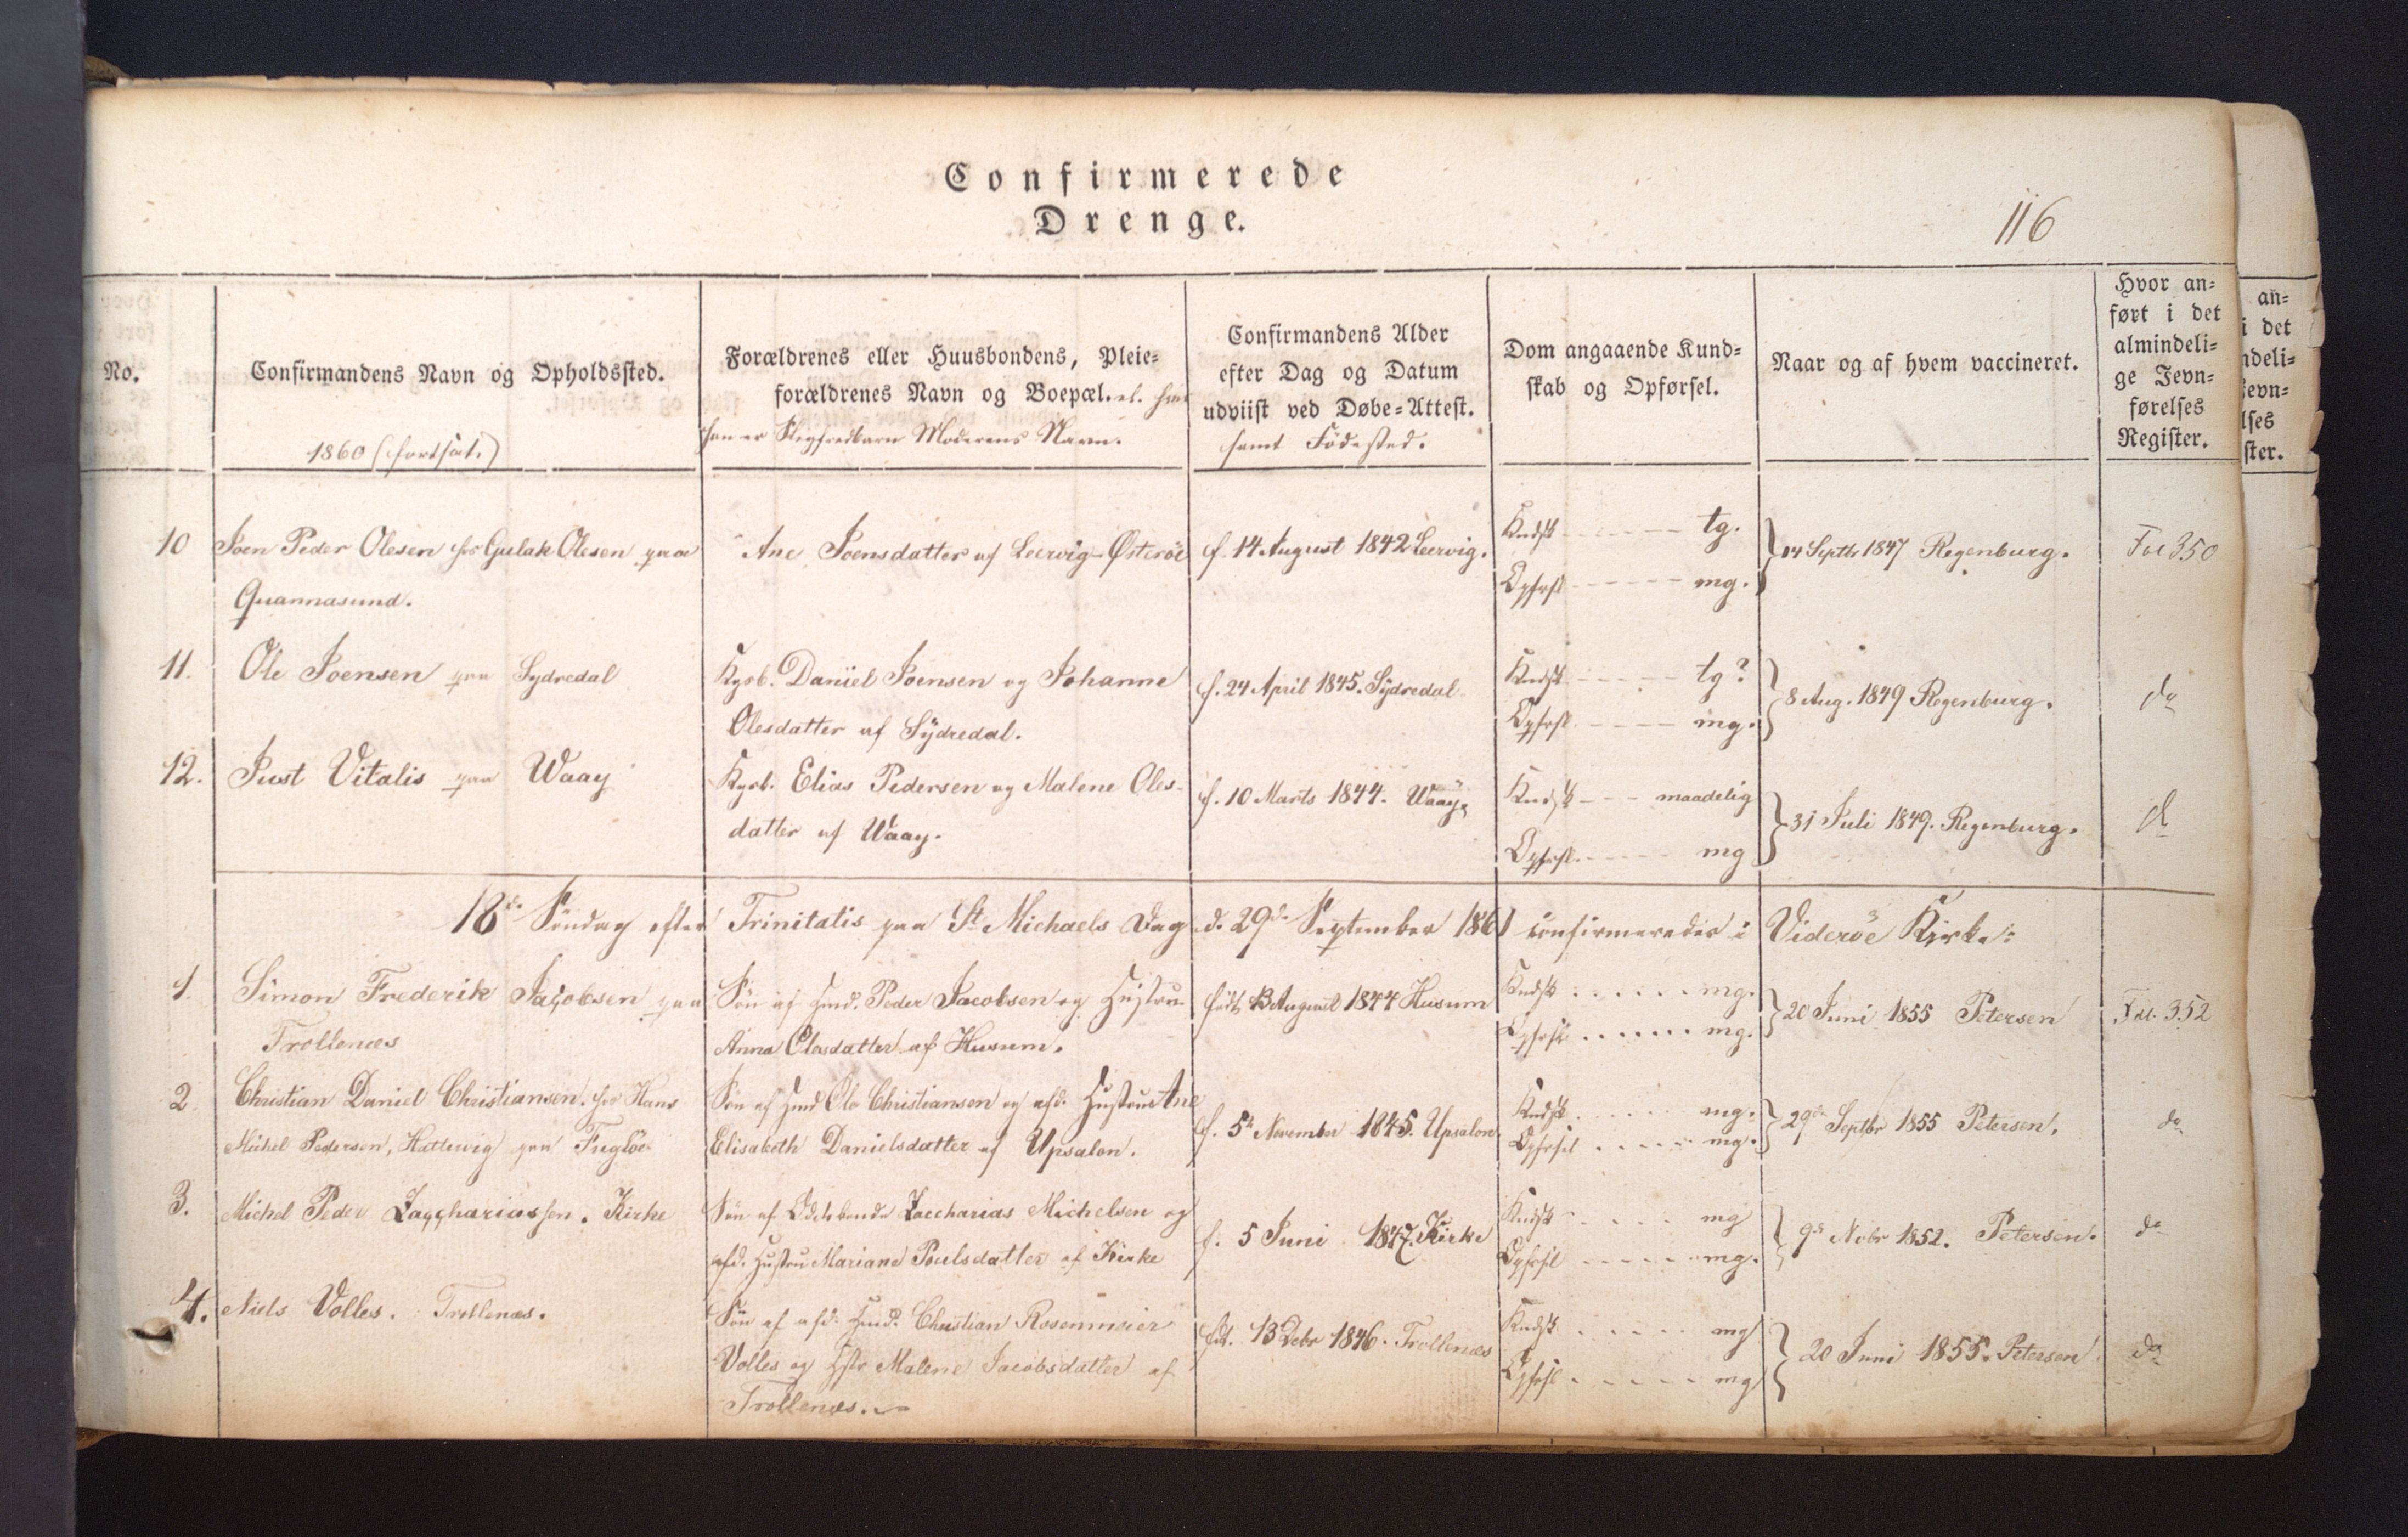 Confirmerede
Drenge.
116
No.
Confirmandens Navn og Opholdssted.
1860 (fortsat.)
Forældrenes eller Huusbondens, Pleie=
forældrenes Navn og Boepæl. el. hvis
han er Slegfredbarn Moderens Navn.
Confirmandens Alder
efter Dag og Datum
udviist ved Døbe=Attest.
samt Födested.
Dom angaaende Kund=
skab og Opførsel.
Naar og af hvem vaccineret.
Hvor an=
ført i det
almindeli=
ge Jevn=
førelses
Register.
an=
i det
ndeli=
Jevn=
lses
ster.
10
Joen Peder Olesen hos Gulak Olesen paa
Quannasund.
Ane Joensdatter af Leervig-Østeröe
f. 14 August 1842 Leervig.
Kndsk - - - - - tg.
Opførsl - - - - - mg.
14 Septbr 1847 Regenburg.
Fol 350
11.
Ole Joensen paa Sydredal
Kgsb. Daniel Joensen og Johanne
Olesdatter af Sydredal.
f. 24 April 1845. Sydredal
Kndsk - - - - - tg?
Opførsl - - - - mg.
8 Aug. 1849 Regenburg.
do
12.
Just Vitalis paa Waay
Kgsb. Elias Pedersen og Malene Oles-
datter af Waay.
f. 10 Marts 1844. Waay.
Kndsk - - - maadelig
Opførsl. - - - - - mg
31 Juli 1849. Regenburg.
do
18de Söndag efter Trinitatis paa St Michaels Dag d. 29de September 1861 confirmeredes i Videröe Kirke:
1.
Simon Frederik Jacobsen paa
Trollenæs
Sön af Hmd. Peder Jacobsen og Hustru
Anna Olesdatter af Husum.
födt August 1844 Husum
Kndsk . . . . . . mg.
Opførsl . . . . . . mg.
20 Juni 1855 Petersen
Fol. 352
2
Christian Daniel Christiansen. hos Hans
Michel Pedersen, Hattervig paa Fuglöe
Sön af Hmd Ole Christiansen og afd. Hustrue Ane
Elisabeth Danielsdatter af Upsalon.
f. 5te November 1845. Upsalon
Kndsk . . . . . . mg.
Opførsel . . . . . mg.
29de Septbr 1855 Petersen.
do
3.
Michel Peder Zacchariassen. Kirke
Sön af Odelsbonde Zaccharias Michelsen og
afd. Hustru Mariane Poulsdatter af Kirke
f. 5 Juni 1847. Kirke
Kndsk . . . . . mg
Opførsl - - - - - mg.
9de Nvbr 1852. Petersen.
do
4.
Niels Volles. Trollenæs.
Sön af afd. Hmd. Christian Rosenmeier
Volles og Hstr Malene Jacobsdatter af
Trollenæs.
fdt. 13 Debr 1846. Trollenæs
Kndsk . . . . . . mg
Opførsl . . . . . . mg
20 Juni 1855. Petersen
do